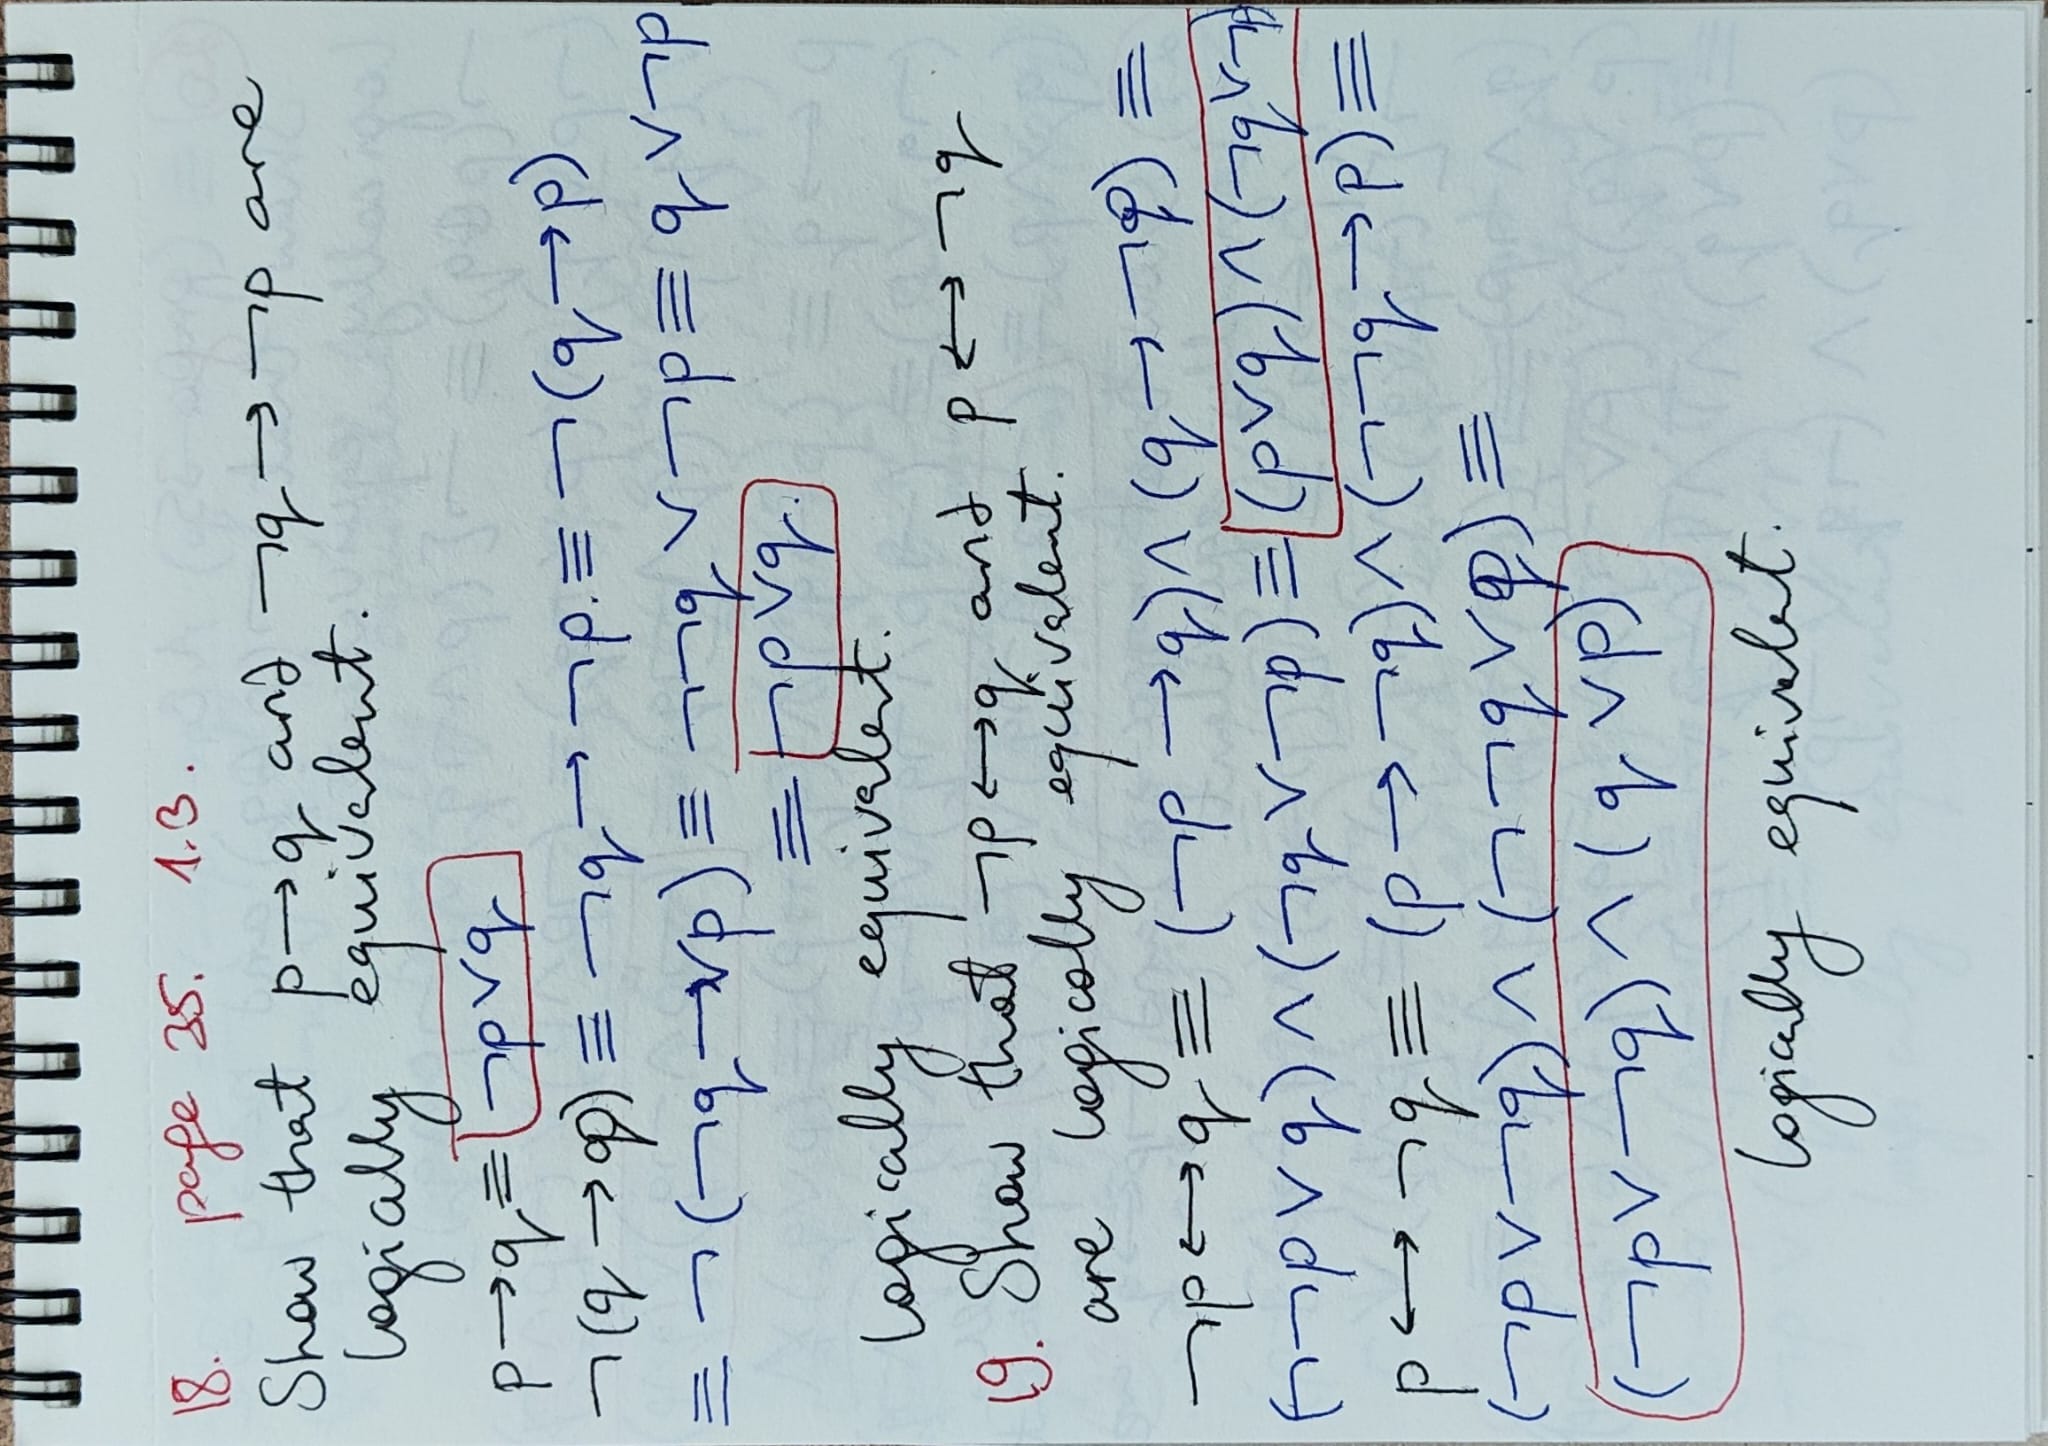 18. page 35. 1.3.
Show that p→q and ¬q→¬p are
logically equivalent.
p→q ≡ ¬p∨q
¬(q→p) ≡ ¬q → ¬p ≡ ¬(q→p)
≡ ¬(¬q∨p) ≡ ¬¬q ∨ ¬p ≡ q ∨ ¬p
≡ ¬p∨q.
logically equivalent.
19. Show that ¬p↔q and p↔¬q
are logically equivalent.
¬p↔q ≡ (¬p→q) ∧ (q→¬p) ≡
(¬¬p∨q) ∧ (¬q∨¬p) ≡ (p∨q) ∧ (¬q∨¬p)
p↔¬q ≡ (p→¬q) ∧ (¬¬q→p) ≡
(¬p∨¬q) ∧ (¬¬q∨p) ≡
(¬p∨¬q) ∧ (q∨p)
logically equivalent.